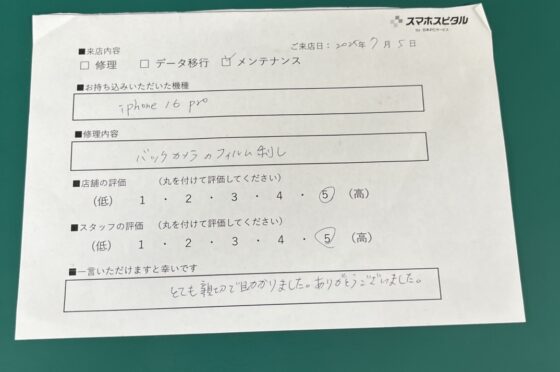 スマホスピタル
ご来店日：2025年7月5日
■来店内容
□ 修理 □ データ移行 ☑ メンテナンス
■お持ち込みいただいた機種
iphone 16 pro
■修理内容
バックカメラのフィルム剥し
■店舗の評価 （丸を付けて評価してください）
（低） 1 ・ 2 ・ 3 ・ 4 ・ 5 （高）
■スタッフの評価 （丸を付けて評価してください）
（低） 1 ・ 2 ・ 3 ・ 4 ・ 5 （高）
■一言いただけますと幸いです
とても親切で助かりました。ありがとうございました。